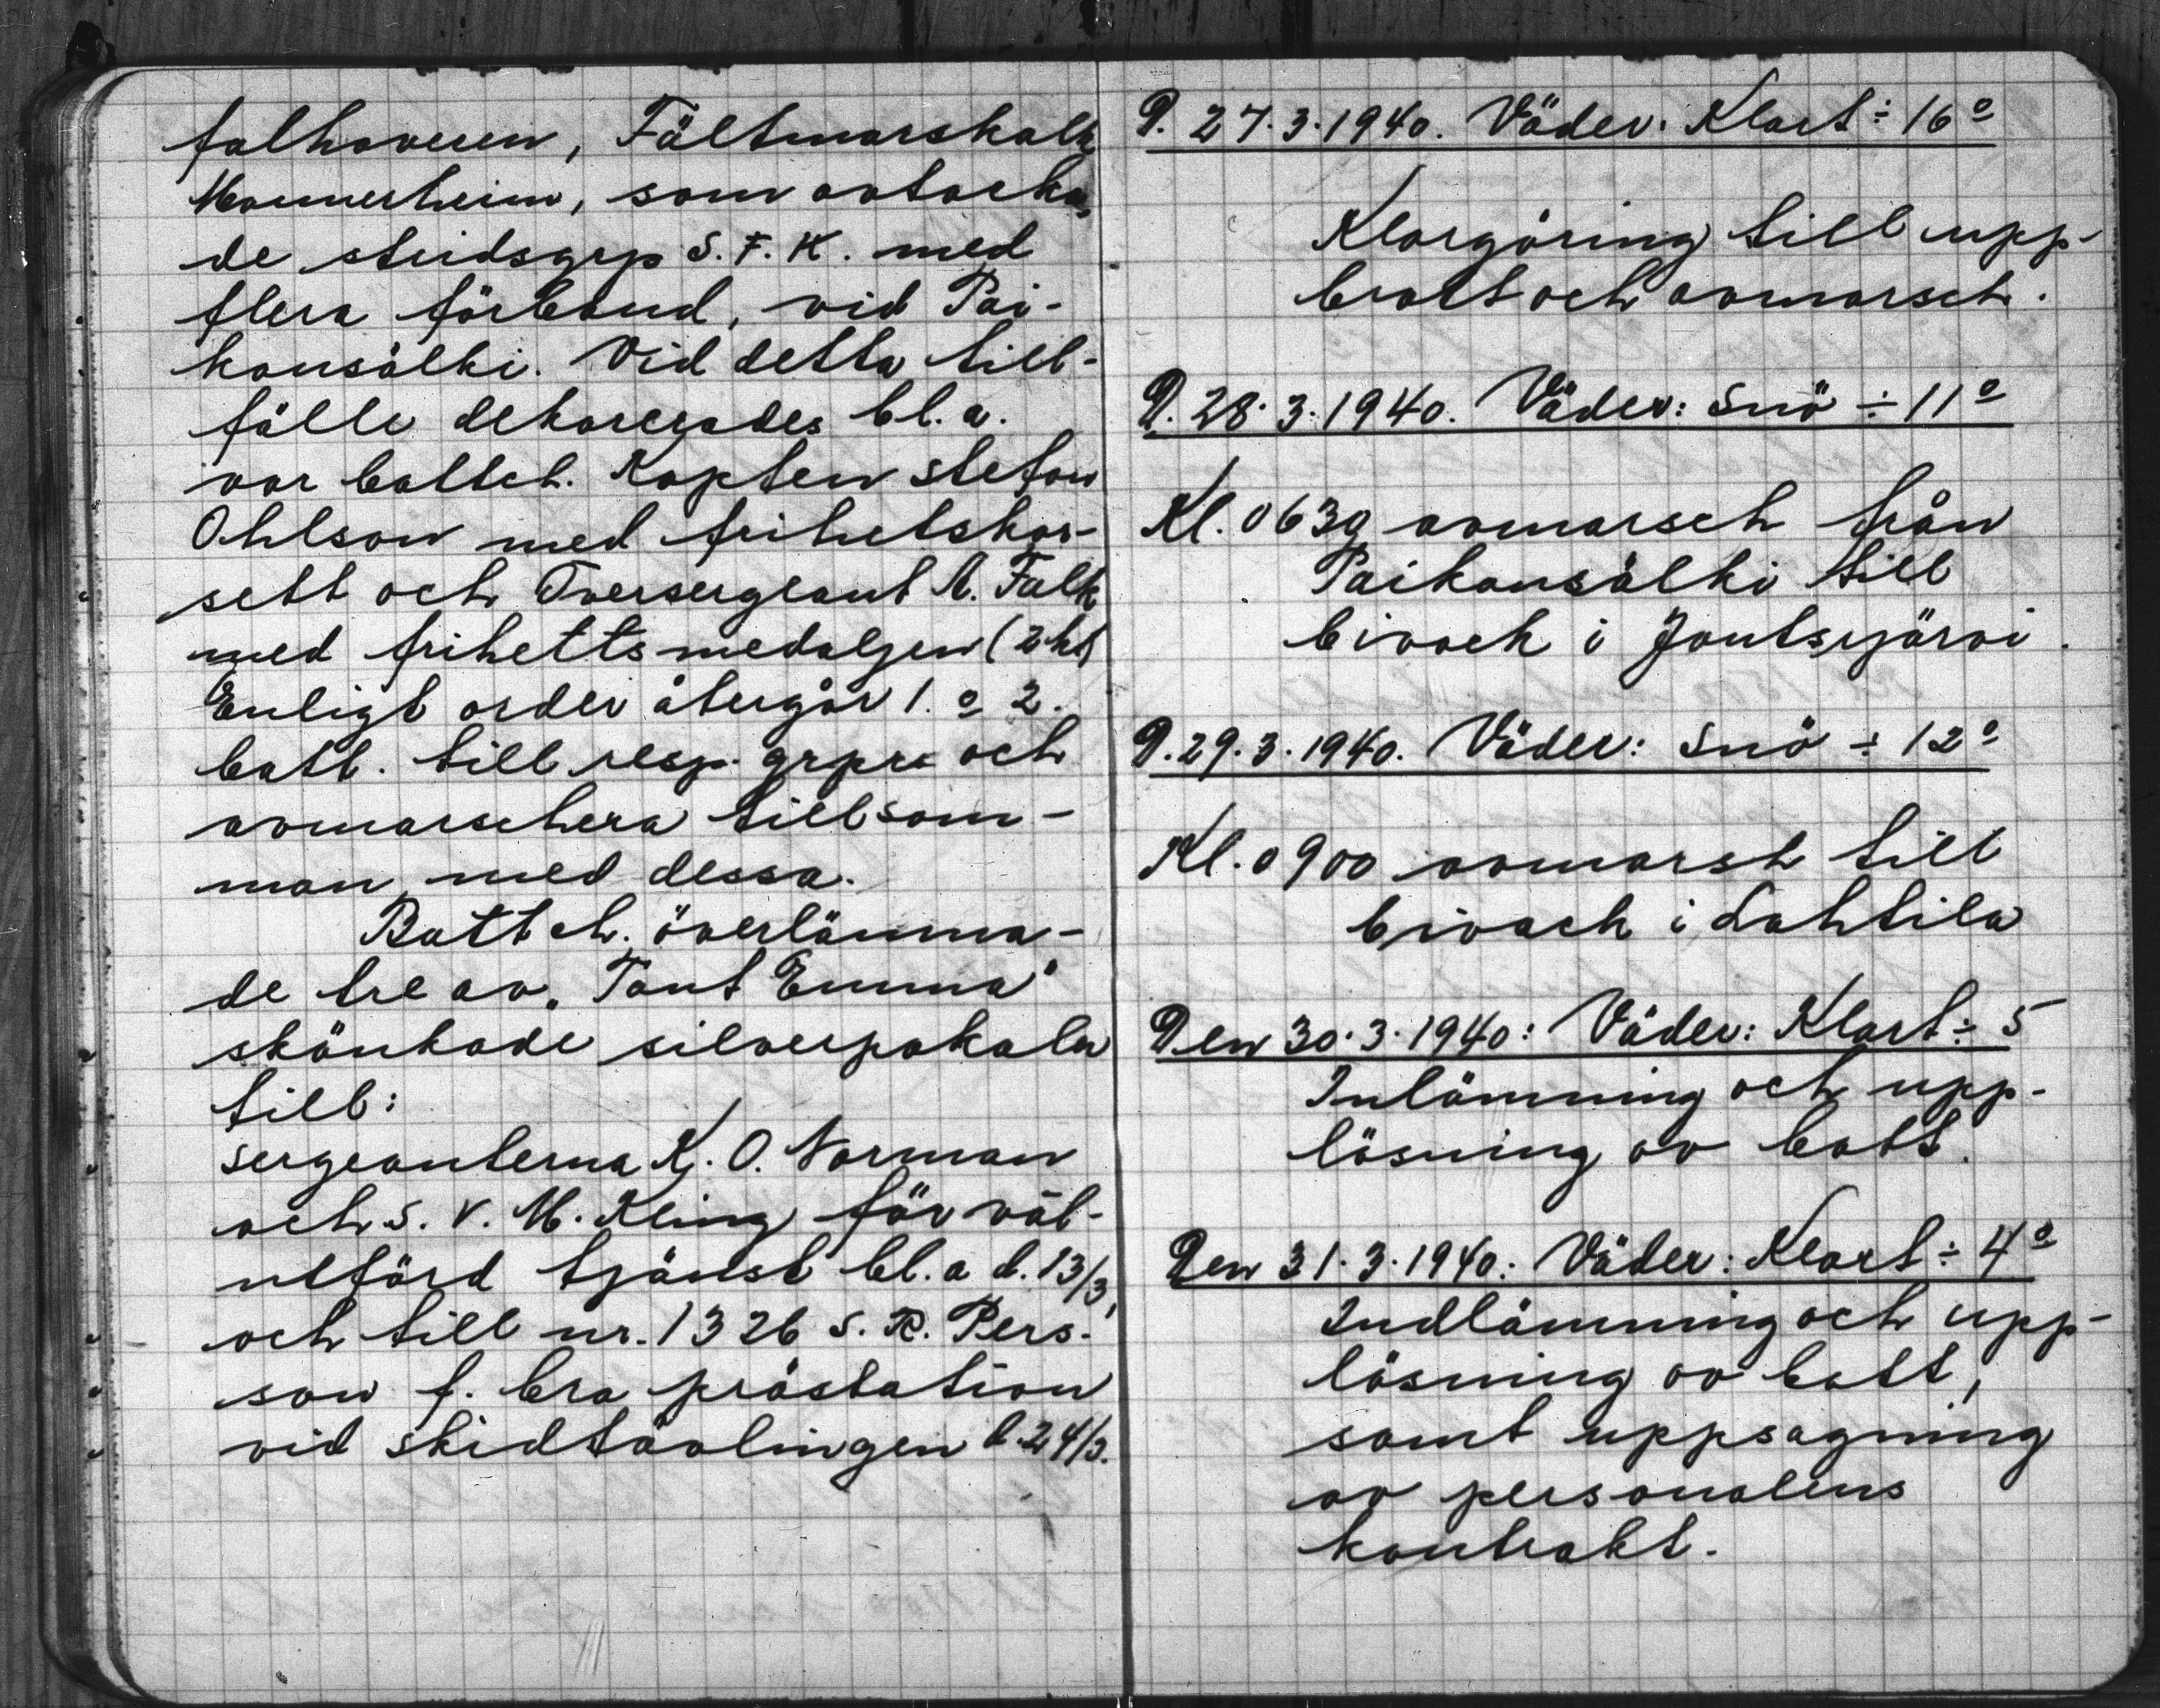 falhaveren, Fältmarskalk
Mannerheim, som avtacka,
de stridsgrp S. F. K. med
flera förband, vid Pai-
kansälki. Vid detta till-
fälle dekorerades bl. a.
vår battch. Kapten Stefan
Ohlson med frihetskor-
sett och Översergeant A. Falk
med frihettsmedaljen (2 kl)
Enligt order återgår 1. o 2.
batt. till resp. grpr och
avmarschera tillsam-
man med dessa.
Battch. överlämna-
de tre av "Tant Emma"
skänkade silverpokaler
till:
sergeanterna K. O. Norman
och S. V. M. Kling för väl-
utförd tjänst bl. a d. 13/3,
och till nr. 1326 S. R. Pers-
son f. bra prästation
vid skidtävlingen d. 24/3.
D. 27.3.1940. Väder: Klart ÷ 16°
Klargöring till upp-
brott och avmarsch.
D. 28.3.1940. Väder: Snö ÷ 11°
Kl. 0630 avmarsch från
Paikansälki till
bivack i Joutsijärvi.
D. 29.3.1940. Väder: Snö ÷ 12°
Kl. 0900 avmarsh till
bivack i Lahtila
Den 30.3.1940: Väder: Klart ÷ 5
Inlämning och upp-
lösning av batt.
Den 31.3.1940: Väder: Klart ÷ 4°
Indlämning och upp-
lösning av batt,
samt uppsagning
av personalens
kontrakt.